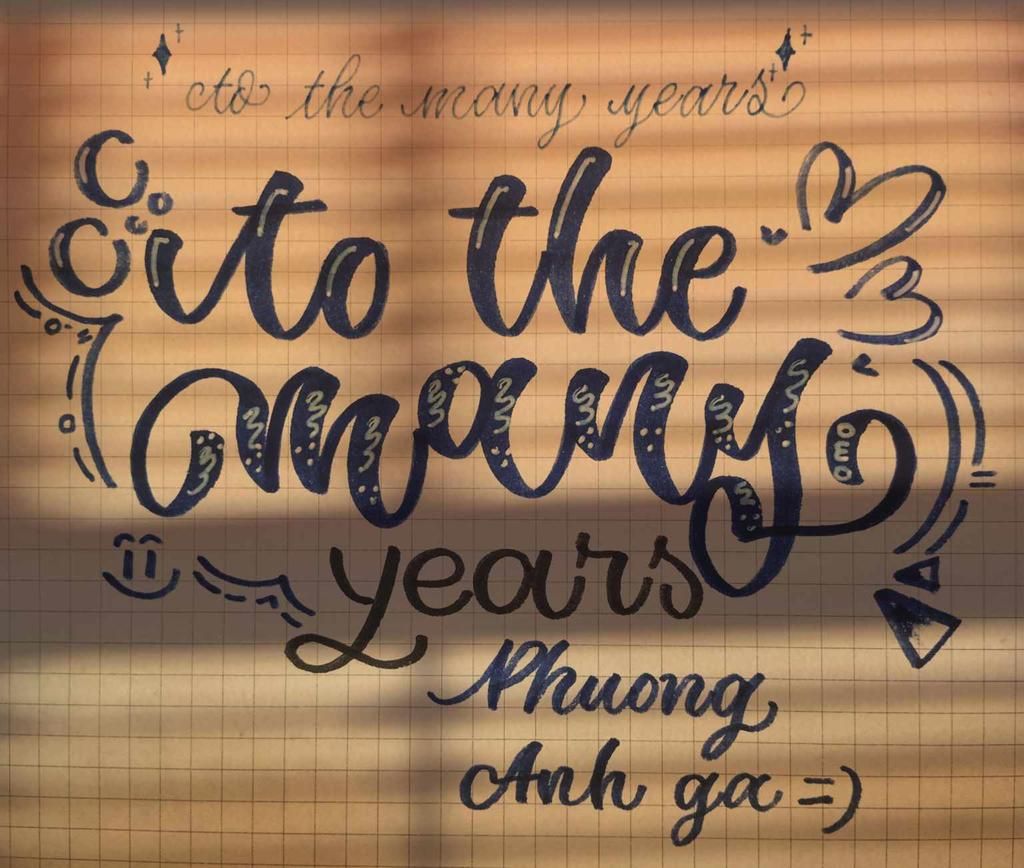 to the many years
to the
many
years
Phuong
Anh ga =)